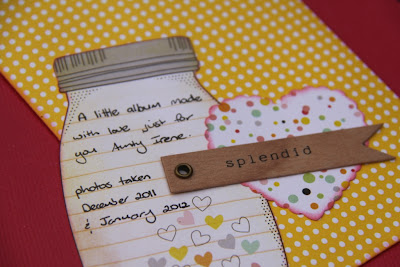 A little album made
with love just for
you Aunty Irene.
photos taken
December 2011
& January 2012
splendid